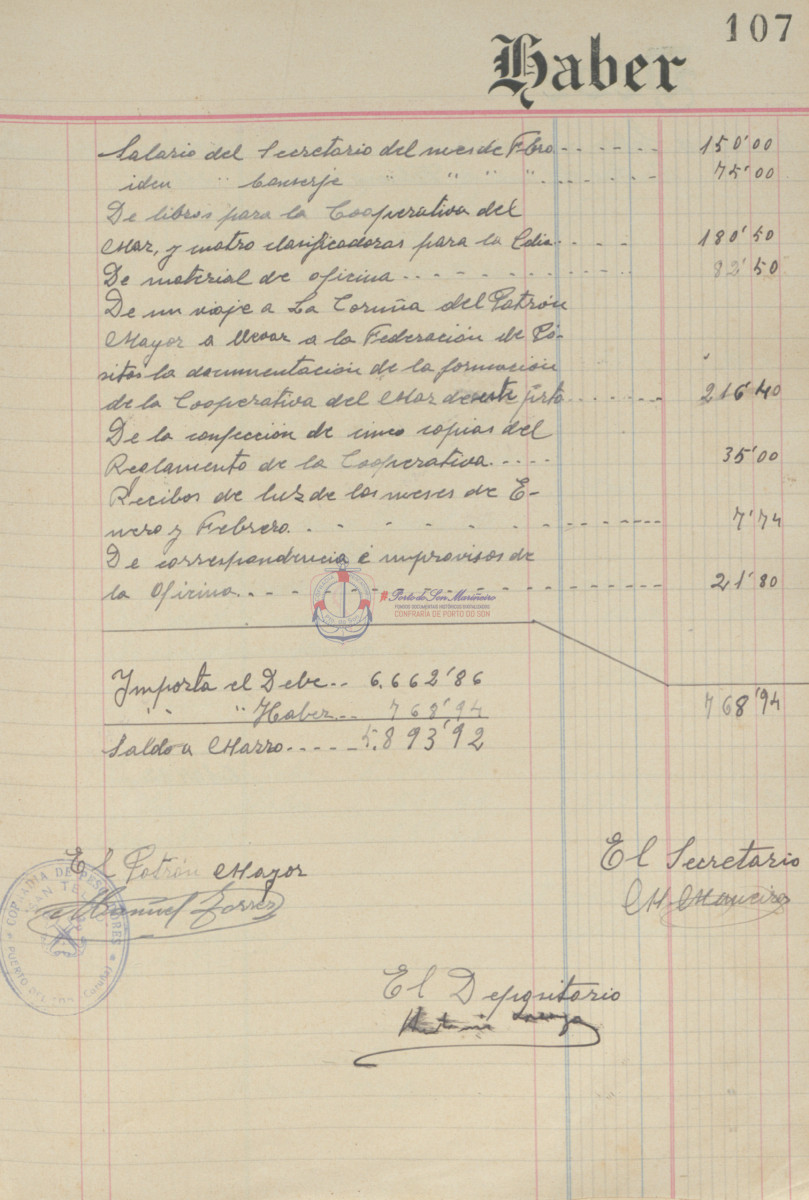 107
Haber
Salario del Secretario del mes de Fbro 150'00
iden " Conserje " " " " 75'00
De libros para la Cooperativa del
Mar, y cuatro clasificadoras para la Cdia 180'50
De material de oficina 82'50
De un viaje a La Coruña del Patrón
Mayor a llevar a la Federación de Pó-
sitos la documentación de la formación
de la Cooperativa del Mar de este 216'40
De la confección de cinco copias del
Reglamento de la Cooperativa 35'00
Recibos de luz de los meses de E-
nero y Febrero 7'74
De correspondencia é improvisos de
la Oficina 21'80
#Porto do Son Mariñeiro
FONDOS DOCUMENTAIS HISTÓRICOS DIGITALIZADOS
CONFRARÍA DE PORTO DO SON
Importa el Debe 6.662'86
" " " Haber 768'94
768'94
Saldo a Marzo 5.893'92
El Patrón Mayor
El Secretario
Manuel Torres
M. Maneiro
COFRADIA DE PESCADORES
SAN TELMO
PUERTO DEL SON (CORUÑA)
El Depositario
Antonio